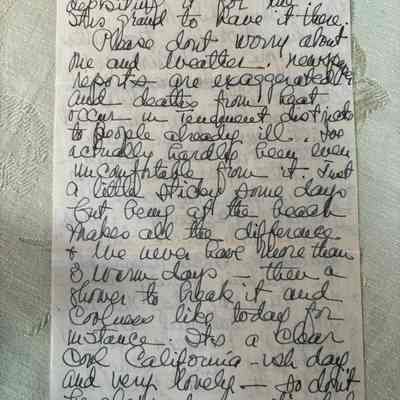 depositing it for me.
Its grand to have it there.
Please dont worry about
me and weather. newspaper
reports are exaggerated
and deaths from heat
occur in tenement districts
to people already ill. Ive
actually hardly been even
uncomfortable from it. Just
a little sticky some days
but being at the beach
makes all the difference
& we never have more than
3 warm days - then a
shower to break it and
coolness like today for
instance. Its a clear
cool California-ish day
and very lovely - so don't